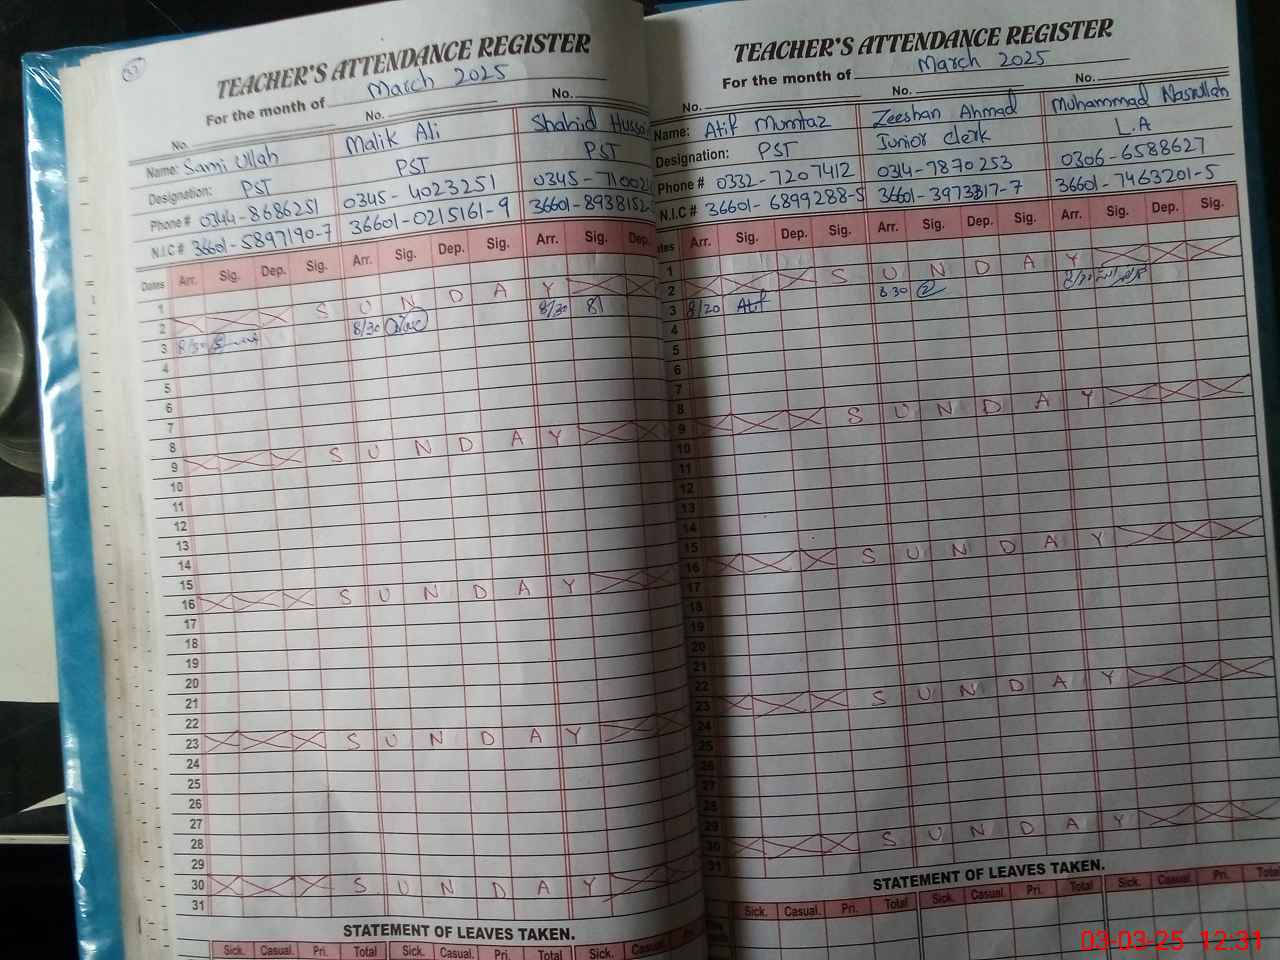 TEACHER'S ATTENDANCE REGISTER
For the month of March 2025
No. No. No.
Name: Sami Ullah Malik Ali Shahid Hussai
Designation: PST PST PST
Phone # 0344-8686251 0345-4023251 0345-71002
N.I.C # 36601-5897190-7 36601-0215161-9 36601-8938152-
Dates Arr. Sig. Dep. Sig. Arr. Sig. Dep. Sig. Arr. Sig. Dep.
1
2 S U N D A Y
3 8/30 8/30 8/30
4
5
6
7
8
9 S U N D A Y
10
11
12
13
14
15
16 S U N D A Y
17
18
19
20
21
22
23 S U N D A Y
24
25
26
27
28
29
30 S U N D A Y
31
STATEMENT OF LEAVES TAKEN.
Sick. Casual. Pri. Total Sick. Casual. Pri. Total Sick. Casual.
TEACHER'S ATTENDANCE REGISTER
For the month of March 2025
No. No. No.
Name: Atif Mumtaz Zeeshan Ahmad Muhammad Nasrullah
Designation: PST Junior Clerk L.A
Phone # 0332-7207412 0314-7870253 0306-6588627
N.I.C # 36601-6899288-5 36601-3973317-7 36601-7463201-5
ates Arr. Sig. Dep. Sig. Arr. Sig. Dep. Sig. Arr. Sig. Dep. Sig.
1
2 S U N D A Y
3 8/20 Atif 8 30
4
5
6
7
8
9 S U N D A Y
10
11
12
13
14
15
16 S U N D A Y
17
18
19
20
21
22
23 S U N D A Y
24
25
26
27
28
29
30 S U N D A Y
31
STATEMENT OF LEAVES TAKEN.
Sick. Casual. Pri. Total Sick. Casual. Pri. Total Sick. Casual. Pri. Total
03-03-25 12:31